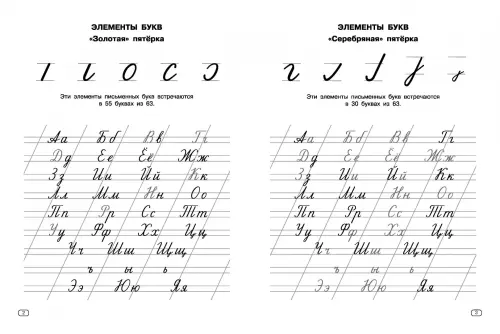 ЭЛЕМЕНТЫ БУКВ
«Золотая» пятёрка
Эти элементы письменных букв встречаются
в 55 буквах из 63.
Аа Бб Вв Гг
Дд Ее Ёё Жж
Зз Ии Йй Кк
Лл Мм Нн Оо
Пп Рр Сс Тт
Уу Фф Хх Цц
Чч Шш Щщ
ъ ы ь
Ээ Юю Яя
2
ЭЛЕМЕНТЫ БУКВ
«Серебряная» пятёрка
Эти элементы письменных букв встречаются
в 30 буквах из 63.
Аа Бб Вв Гг
Дд Ее Ёё Жж
Зз Ии Йй Кк
Лл Мм Нн Оо
Пп Рр Сс Тт
Уу Фф Хх Цц
Чч Шш Щщ
ъ ы ь
Ээ Юю Яя